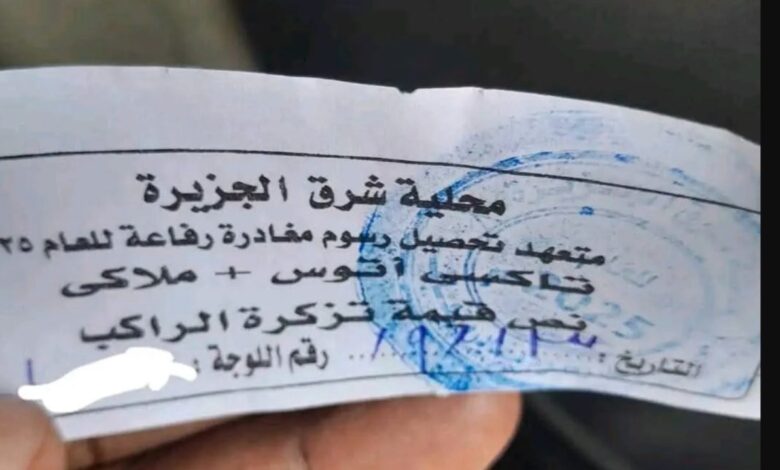 محلية شرق الجزيرة
متعهد تحصيل رسوم مغادرة رفاعة للعام ٢٥
تاكسى أتوس + ملاكى
نص قيمة تزكرة الراكب
التاريخ : رقم اللوحة :
2025